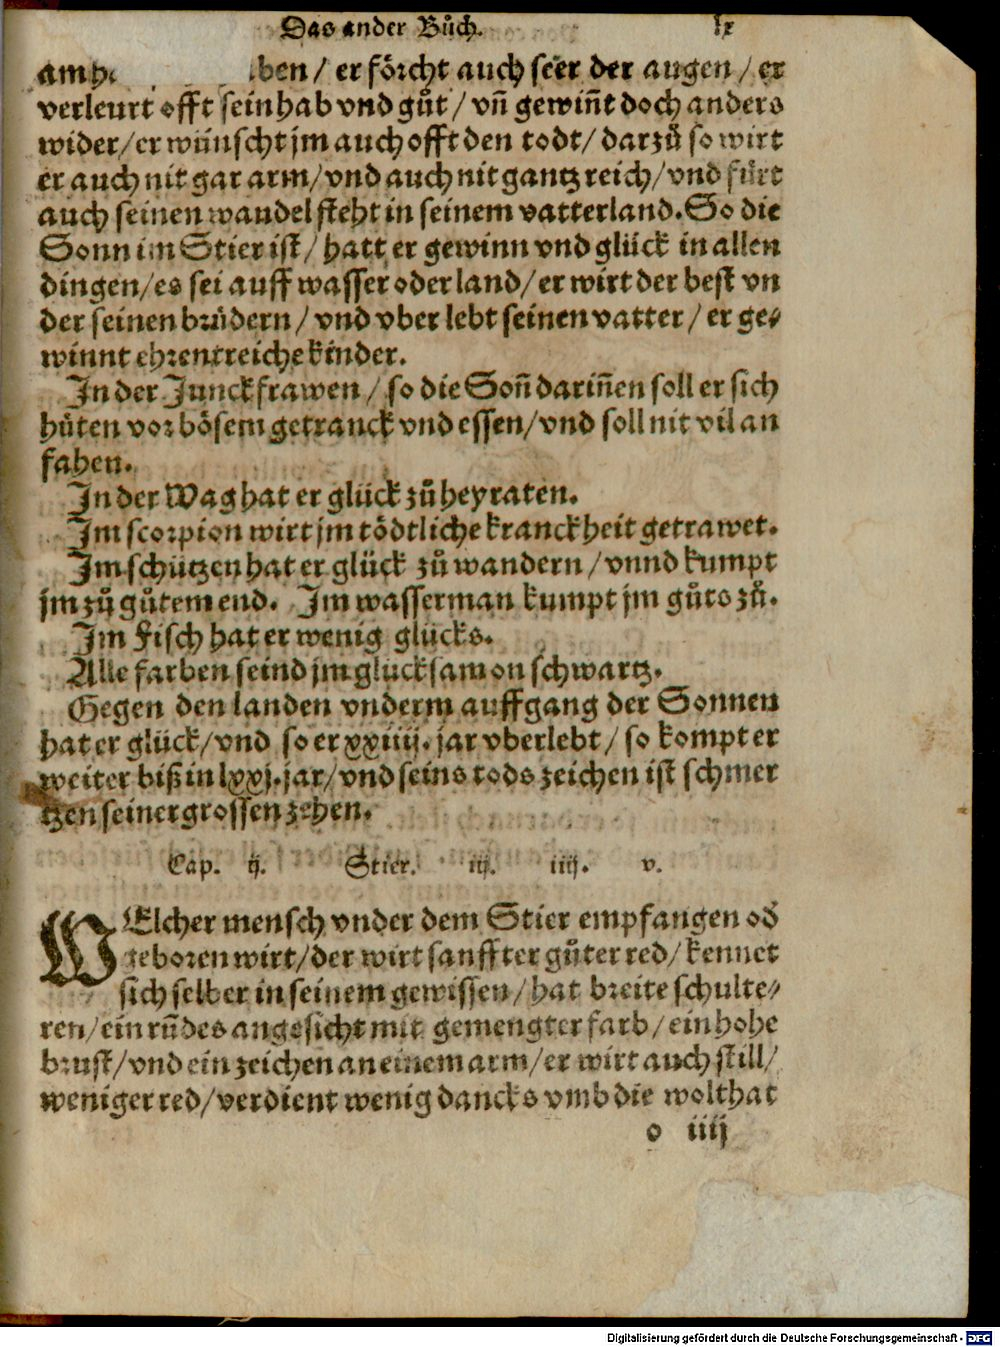 Das ander Bůch. lx
am h ben / er förcht auch seer der augen / er
verleurt offt sein hab vnd gůt / vñ gewiñt doch anders
wider / er wünscht jm auch offt den todt / darzů so wirt
er auch nit gar arm / vnd auch nit gantz reich / vnd fürt
auch seinen wandel steht in seinem vatterland. So die
Sonn im Stier ist / hatt er gewinn vnd glück in allen
dingen / es sei auff wasser oder land / er wirt der best vn
der seinen brüdern / vnd vber lebt seinen vatter / er ge⸗
winnt ehrentreiche kinder.
In der Junckfrawen / so die Soñ dariñen soll er sich
hüten vor bösem getranck vnd essen / vnd soll nit vil an
fahen.
In der Wag hat er glück zů heyraten.
Im scorpion wirt jm tödtliche kranckheit getrawet.
Im schützen hat er glück zů wandern / vnnd kumpt
jm zů gůtem end. Im wasserman kumpt jm gůts zů.
Im Fisch hat er wenig glücks.
Alle farben seind jm glücksam on schwartz.
Gegen den landen vnderm auffgang der Sonnen
hat er glück / vnd so er xxiiij. jar vberlebt / so kompt er
weiter biß in lxxj. jar / vnd seins tods zeichen ist schmer
tzen seiner grossen zehen.
Cap. ij. Stier. iij. iiij. v.
WElcher mensch vnder dem Stier empfangen od̕
geboren wirt / der wirt sanffter gůter red / kennet
sich selber in seinem gewissen / hat breite schulte⸗
ren / ein rūdes angesicht mit gemengter farb / ein hohe
brust / vnd ein zeichen an einem arm / er wirt auch still /
weniger red / verdient wenig dancks vmb die wolthat
o iiij
Digitalisierung gefördert durch die Deutsche Forschungsgemeinschaft - DFG